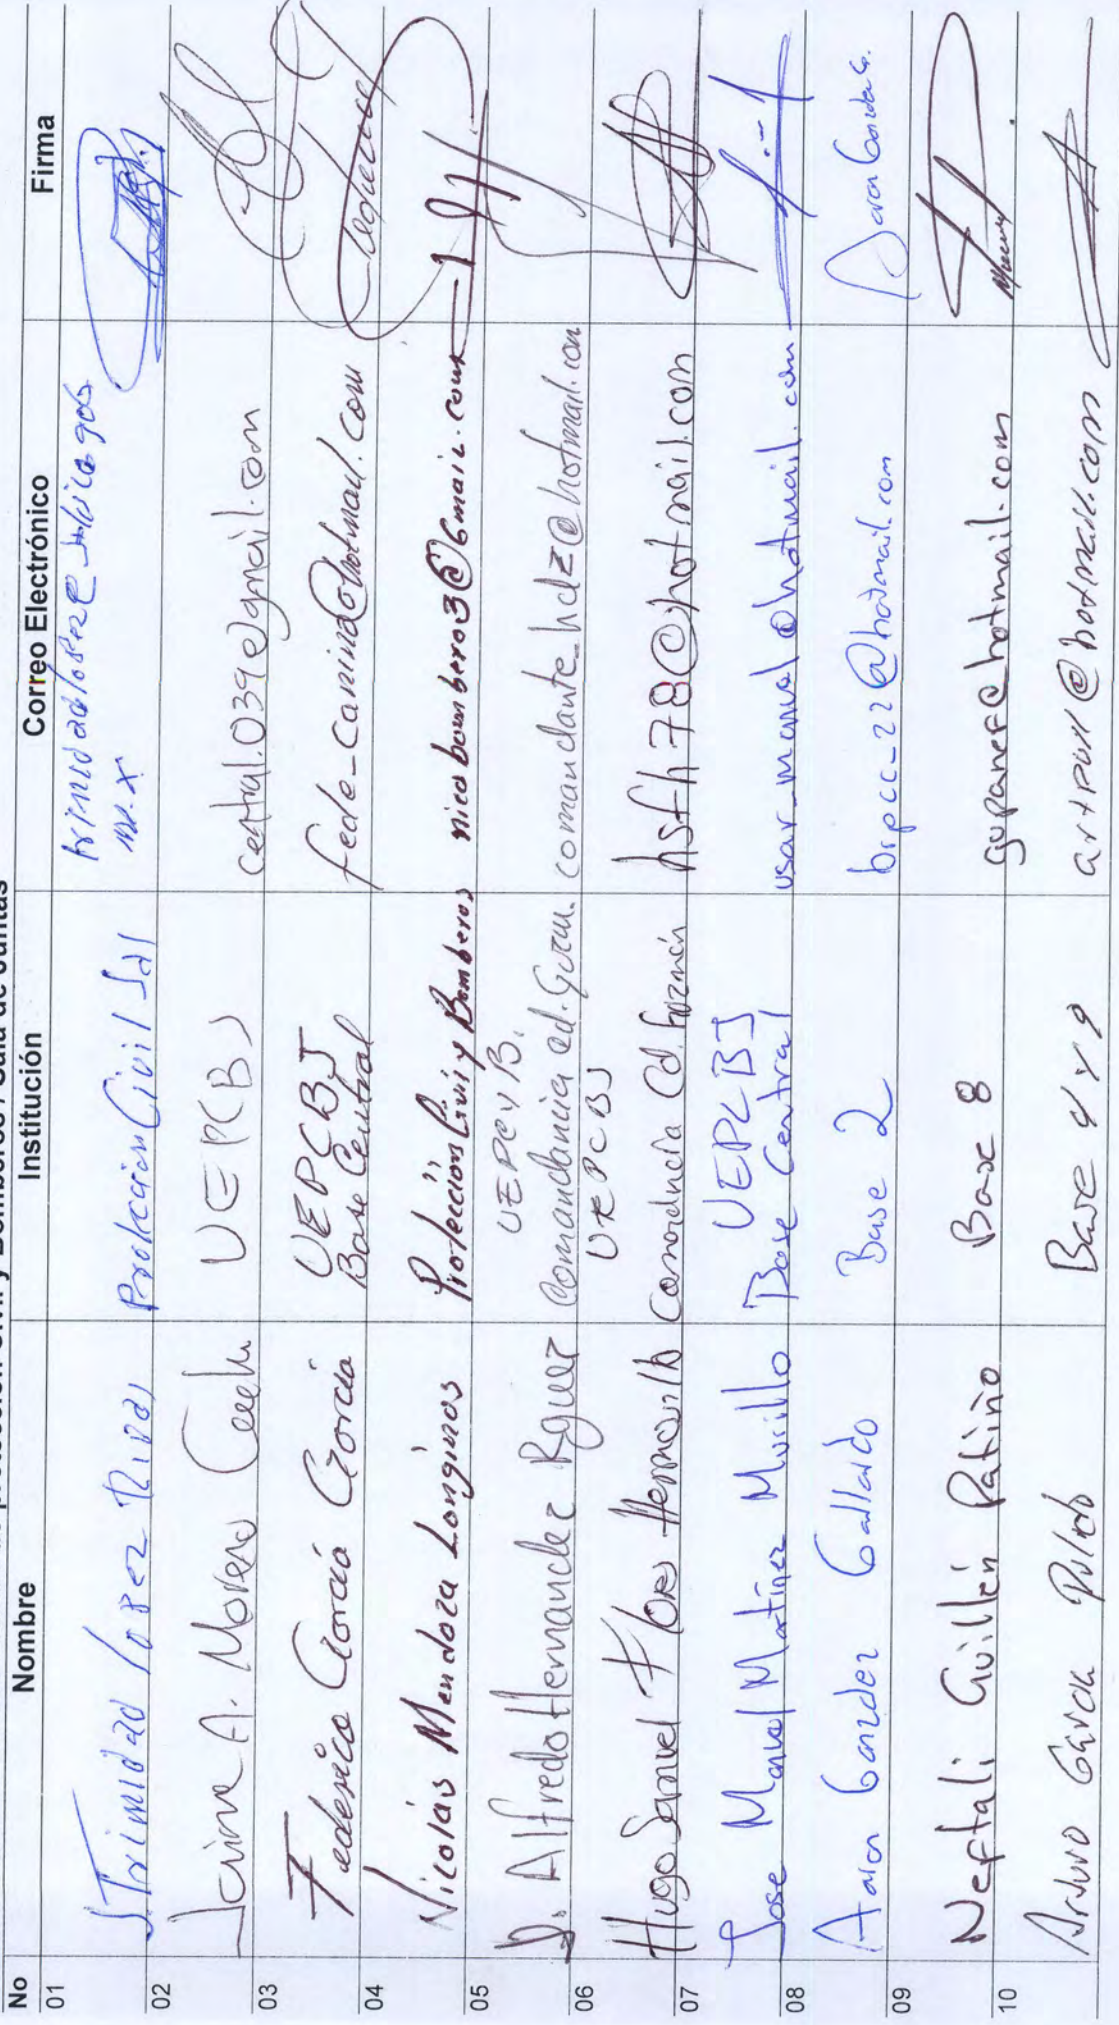 de protección civil y Bomberos / Sala de Juntas
No Nombre Institución Correo Electrónico Firma
01 J. Trinidad Lopez Rivas Protección Civil Jal
02 Jaime A. Moreno UEPCBJ central.039@gmail.com
03 Federico Garcia Garcia UEPCBJ
Base Central fede_canino@hotmail.com
04 Nicolás Mendoza Longinos Protección Civil y Bomberos nicobombero3@Gmail.com
05 J. Alfredo Hernandez Rguez UEPCyB.
Comandancia cd. Guzm. comandante_hdz@hotmail.com
06 Hugo Samuel Flores Hermosillo UEPCBJ
Comandancia Cd. Guzmán hsfh78@hotmail.com
07 Jose Manuel Martínez Murillo UEPCBJ
Base Central usar_manuel@hotmail.com
08 Aaron Gonzalez Gallardo Base 2 brpcc_22@hotmail.com
09 Neftali Guillén Patiño Base 8 gupanef@hotmail.com
10 Arturo García Pulido Base 4 y 9 artpull@hotmail.com